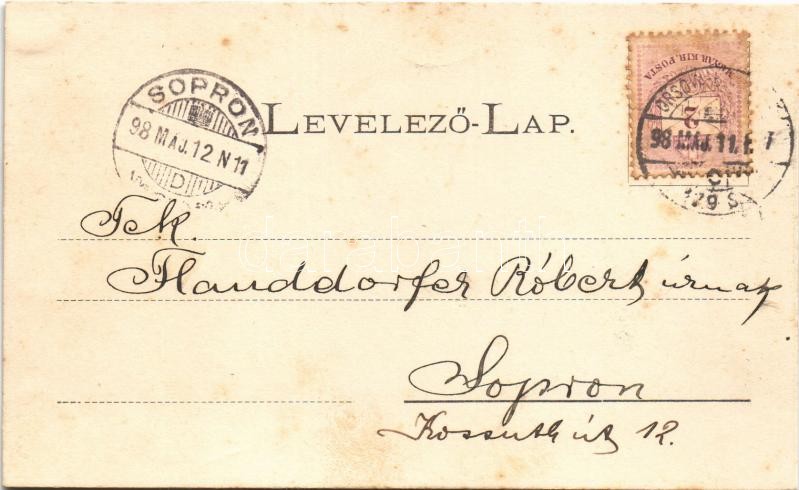 SOPRON
98 MÁJ. 12 N 11
D
LEVELEZŐ-LAP.
MAGYAR KIR. POSTA
2
ORSOVA
98 MÁJ. 11. F. 7
Tek.
Handdorfer Róbert úrnak
Sopron
Kossuth út 12.